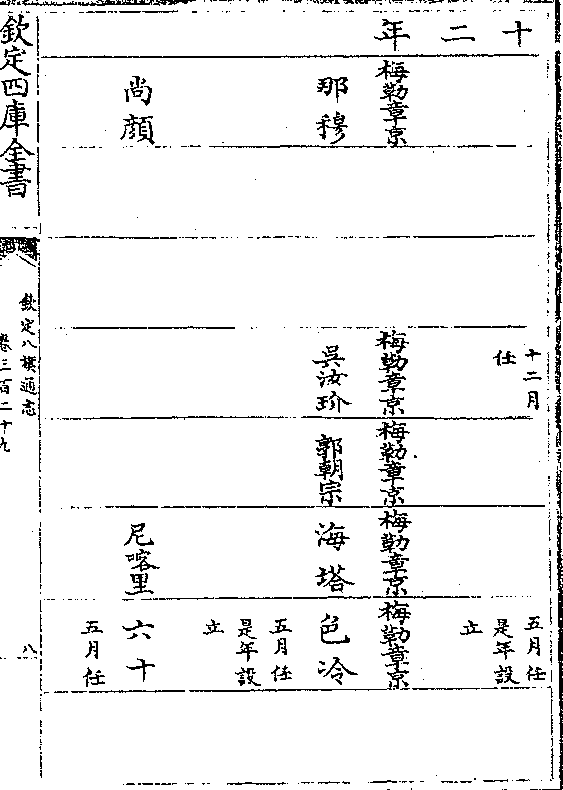 十二年
梅勒章京
那穆
尚顏
十二月
任
梅勒章京
吳汝玠
梅勒章京
郭朝宗
梅勒章京
海塔
尼喀里
五月任
是年設
立
梅勒章京
色冷
五月任
是年設
立
六十
五月任
欽定四庫全書
欽定八旗通志
卷三百二十九
八